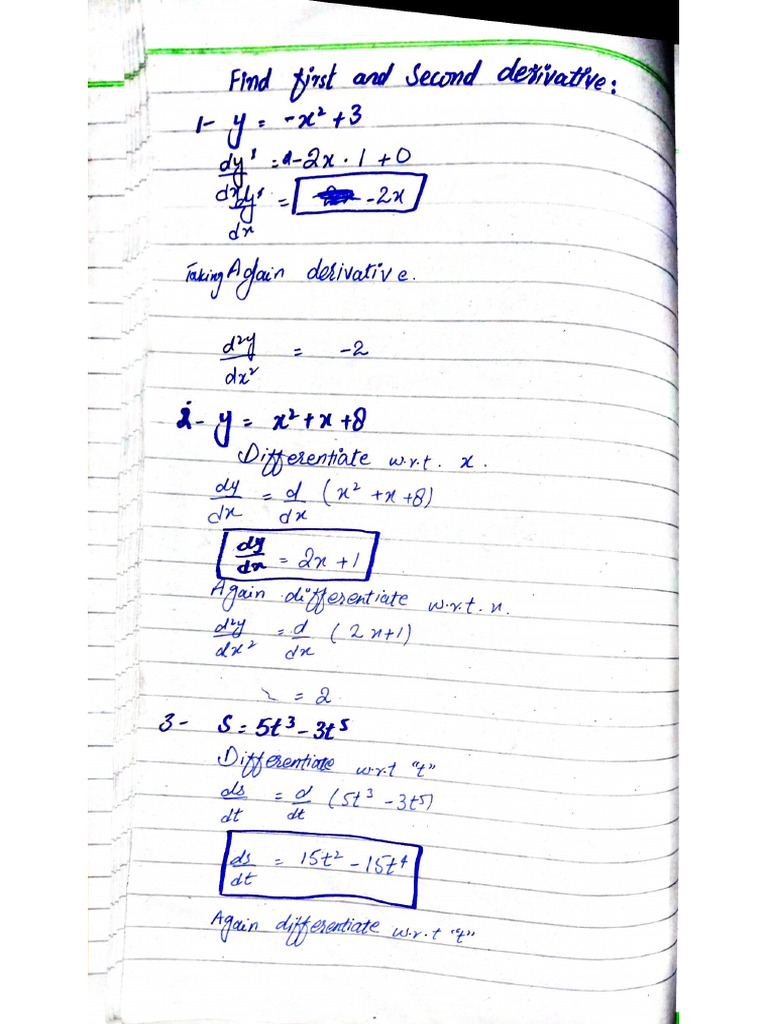 Find first and Second derivative:
1- y = -x² + 3
dy/dx = -2x · 1 + 0
dy/dx = -2x
Taking Again derivative.
d²y/dx² = -2
2- y = x² + x + 8
Differentiate w.r.t. x.
dy/dx = d/dx (x² + x + 8)
dy/dx = 2x + 1
Again differentiate w.r.t. x.
d²y/dx² = d/dx (2x+1)
= 2
3- S = 5t³ - 3t⁵
Differentiate w.r.t "t"
ds/dt = d/dt (5t³ - 3t⁵)
ds/dt = 15t² - 15t⁴
Again differentiate w.r.t "t"